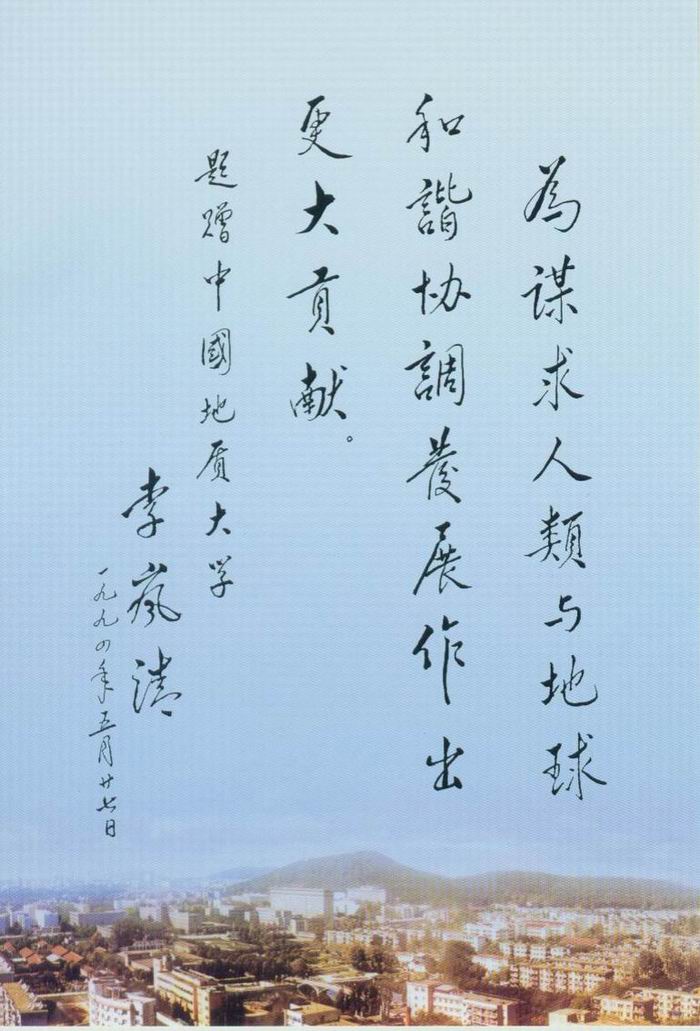 為谋求人類与地球
和諧协調發展作出
更大貢献。
题赠中國地质大学
李岚清
一九九四年五月廿七日